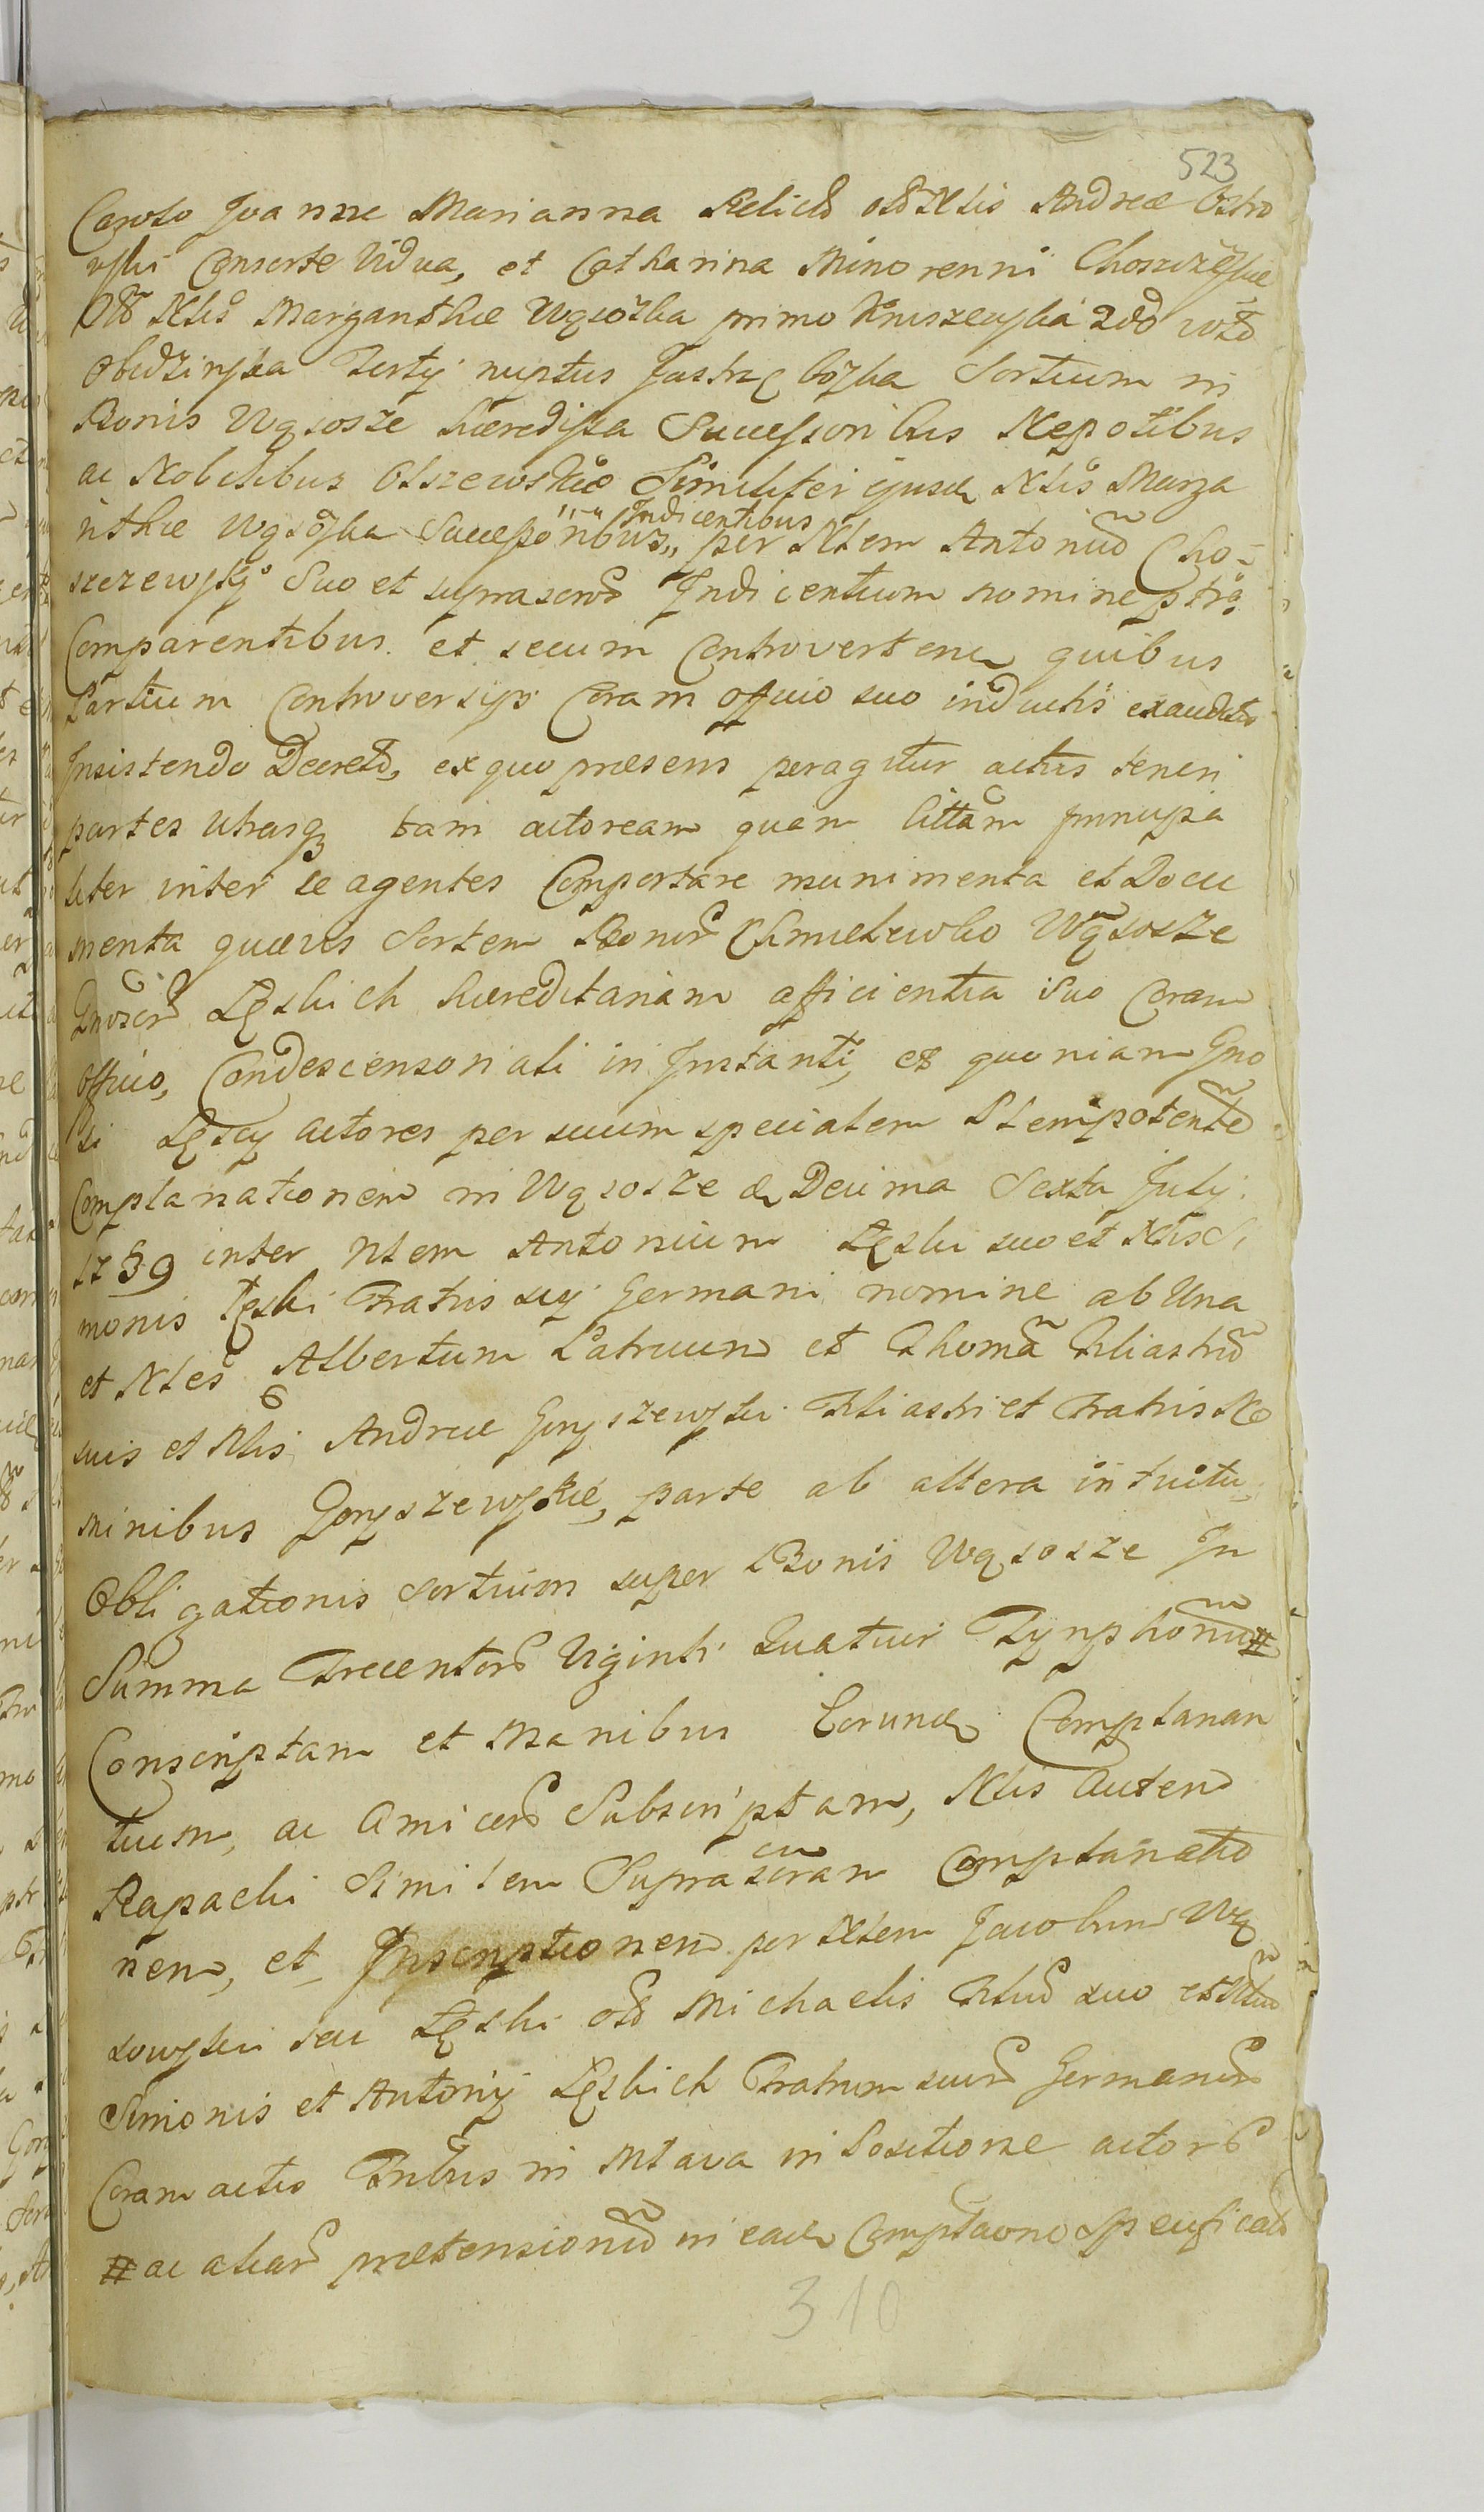 523
Carolo Joanne Marianna Relicta olo Nlis Andreæ Ostro
wski Consorte Vidua, et Catharina Minorenni Choszczewskie
Olo Nlis Marganthæ Wąsoska primo Kruszewska 2do voto
Obidzinska Tertÿ nuptus Jastrzębska Sortium in
Bonis Wąsosze hæredissa Successoribus Nepotibus
ac Nobilibus Olszewskie Similiter ejusd Nlis Marga
nthæ Wąsoska Successoribus,, Indicentibus per Nlem Antoniũ Cho-
szczewsky suo et suprascro Indicentium nomine pttr
Comparentibus et secum Controverten quibus
Partium Controversÿs Coram officio suo inductis exauditis
Insistendo Decreto, ex quo præsens peragitur actus teneri
partes utrasq tam actoream quam cittam principa
liter inter se agentes Comportare munimenta et Docu
menta quævis Sortem Bonor Chmielewko Wąsosze
Gnosor Łęskich hæreditariam afficientia suo Coram
officio, Condescensoriali in Instanti, et quoniam Gno
si Łęscy actores per suum specialem Plenipotente
Complanationem in Wąsosze d Decima Sexta Julÿ
1739 inter Nlem Antonium Łęski suo et Nlis Si
monis Łęski Fratris sui Germani nomine ab Una
et Nles Albertum Patruum et Thomã Filiastrũ
suis et Nlis Andreæ Gorszewski Filiastri et Fratris No
minibus Goryszewskie, parte ab altera intuitu
Obligationis sortium super Bonis Wąsosze In
Summa Trecentor Viginti Quatuor Tynphonũ #
Conscriptam et Manibus Eorund Complanan
tium, ac Amicor Subscriptam, Nlis autem
Rapacki Similem Suprascram Complanatio
nem, et Inscriptionem per Nlem Jacobum Wą
sowski seu Łęski olo Michaelis Filiũ suo et Nliũ
Simonis et Antonÿ Łęskich Fratrum suor Germanor
Coram actis Tribus in Mlava in Positione actor
# ac aliar prætensionũ in ead Complaone Specificat
310